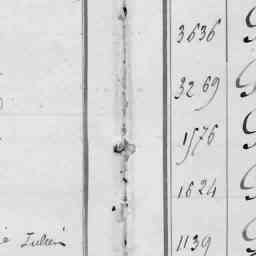 3636
3269
1576
1624
Julien 1139